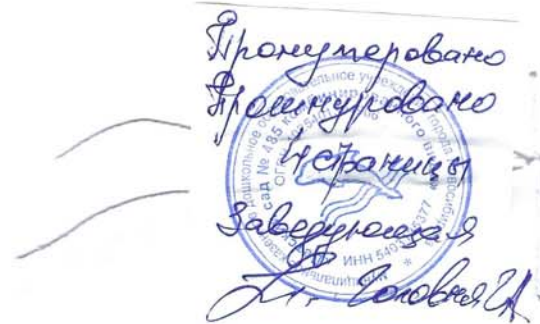 Пронумеровано
Прошнуровано
4 страницы
Заведующая
Головня
дошкольное образовательное учреждение города
сад № 485 комбинированного вида
ОГРН
ИНН